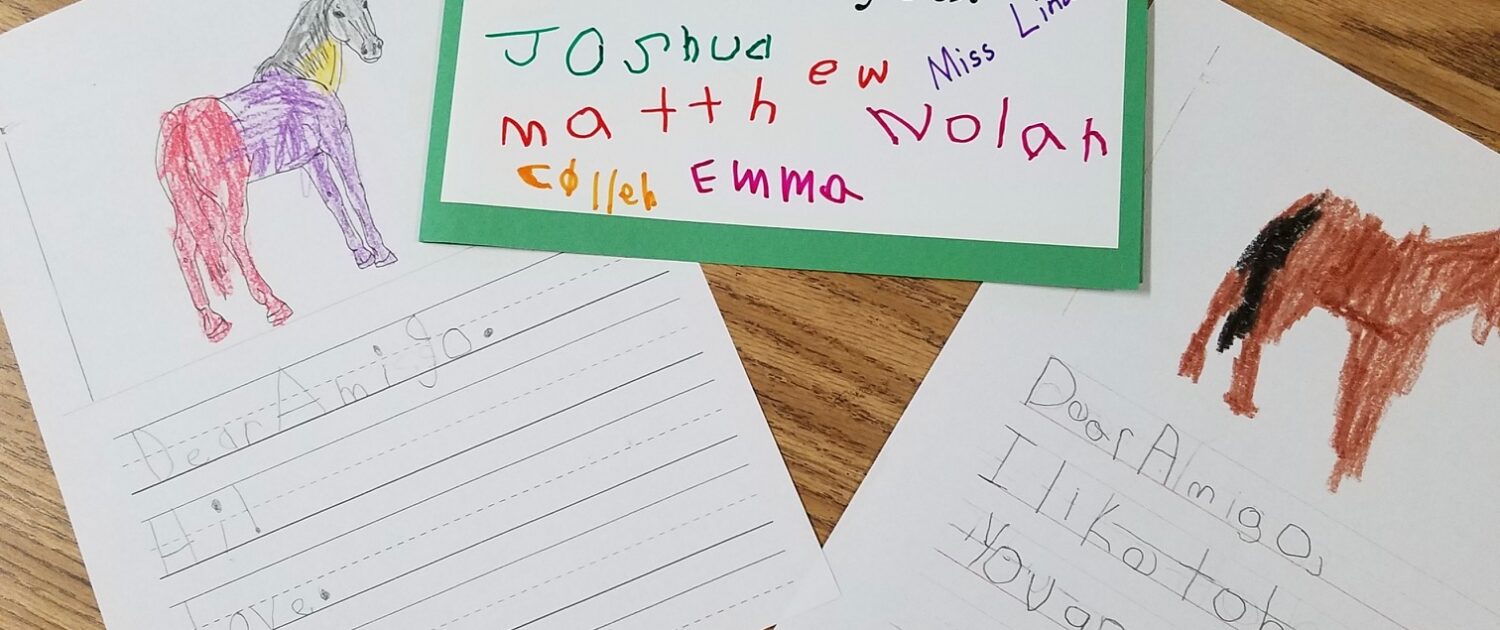 Joshua
Miss
matthew
Nolan
Colleb Emma
Dear Amigo.
Hi!
Love.
Dear Amigo,
I like to
You ar